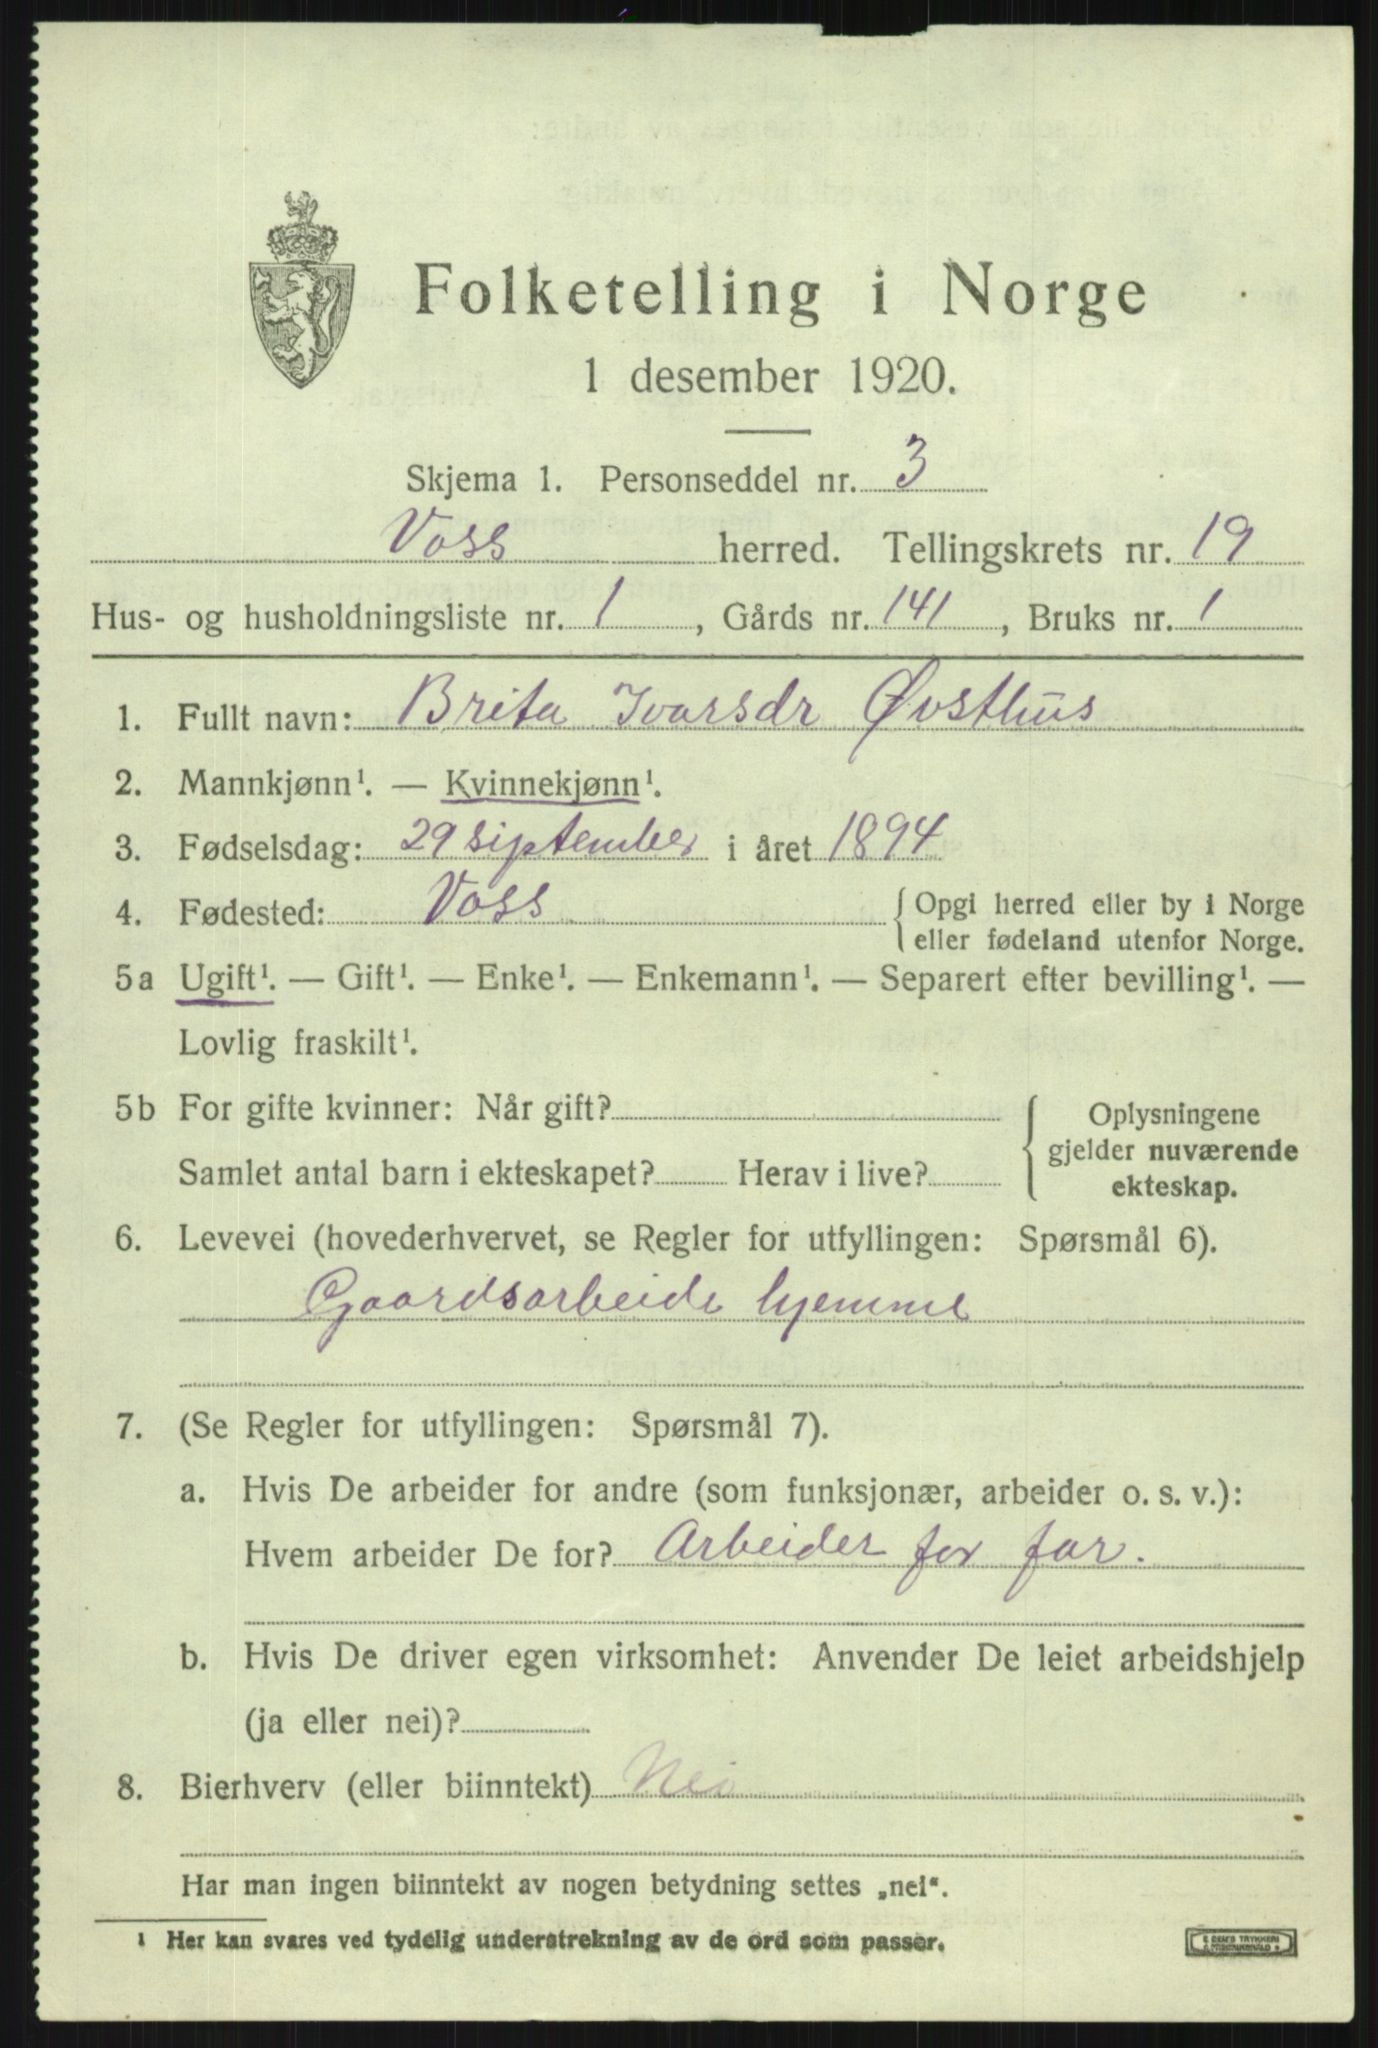 Folketelling i Norge
1 desember 1920.
Skjema 1. Personseddel nr. 3
Voss herred. Tellingskrets nr. 19
Hus- og husholdningsliste nr. 1, Gårds nr. 141, Bruks nr. 1
1. Fullt navn: Brita Ivarsdr Øvsthus
2. Mannkjønn¹. — Kvinnekjønn¹.
3. Fødselsdag: 29 september i året 1894
4. Fødested: Voss { Opgi herred eller by i Norge
eller fødeland utenfor Norge.
5a Ugift¹. — Gift¹. — Enke¹. — Enkemann¹. — Separert efter bevilling¹. —
Lovlig fraskilt¹.
5b For gifte kvinner: Når gift?
Samlet antal barn i ekteskapet? Herav i live?
{ Oplysningene
gjelder nuværende
ekteskap.
6. Levevei (hovederhvervet, se Regler for utfyllingen: Spørsmål 6).
Gaardsarbeide hjemme
7. (Se Regler for utfyllingen: Spørsmål 7).
a. Hvis De arbeider for andre (som funksjonær, arbeider o. s. v.):
Hvem arbeider De for? Arbeider for far.
b. Hvis De driver egen virksomhet: Anvender De leiet arbeidshjelp
(ja eller nei)?
8. Bierhverv (eller biinntekt) Nei
Har man ingen biinntekt av nogen betydning settes „nei“.
¹ Her kan svares ved tydelig understrekning av de ord som passer.